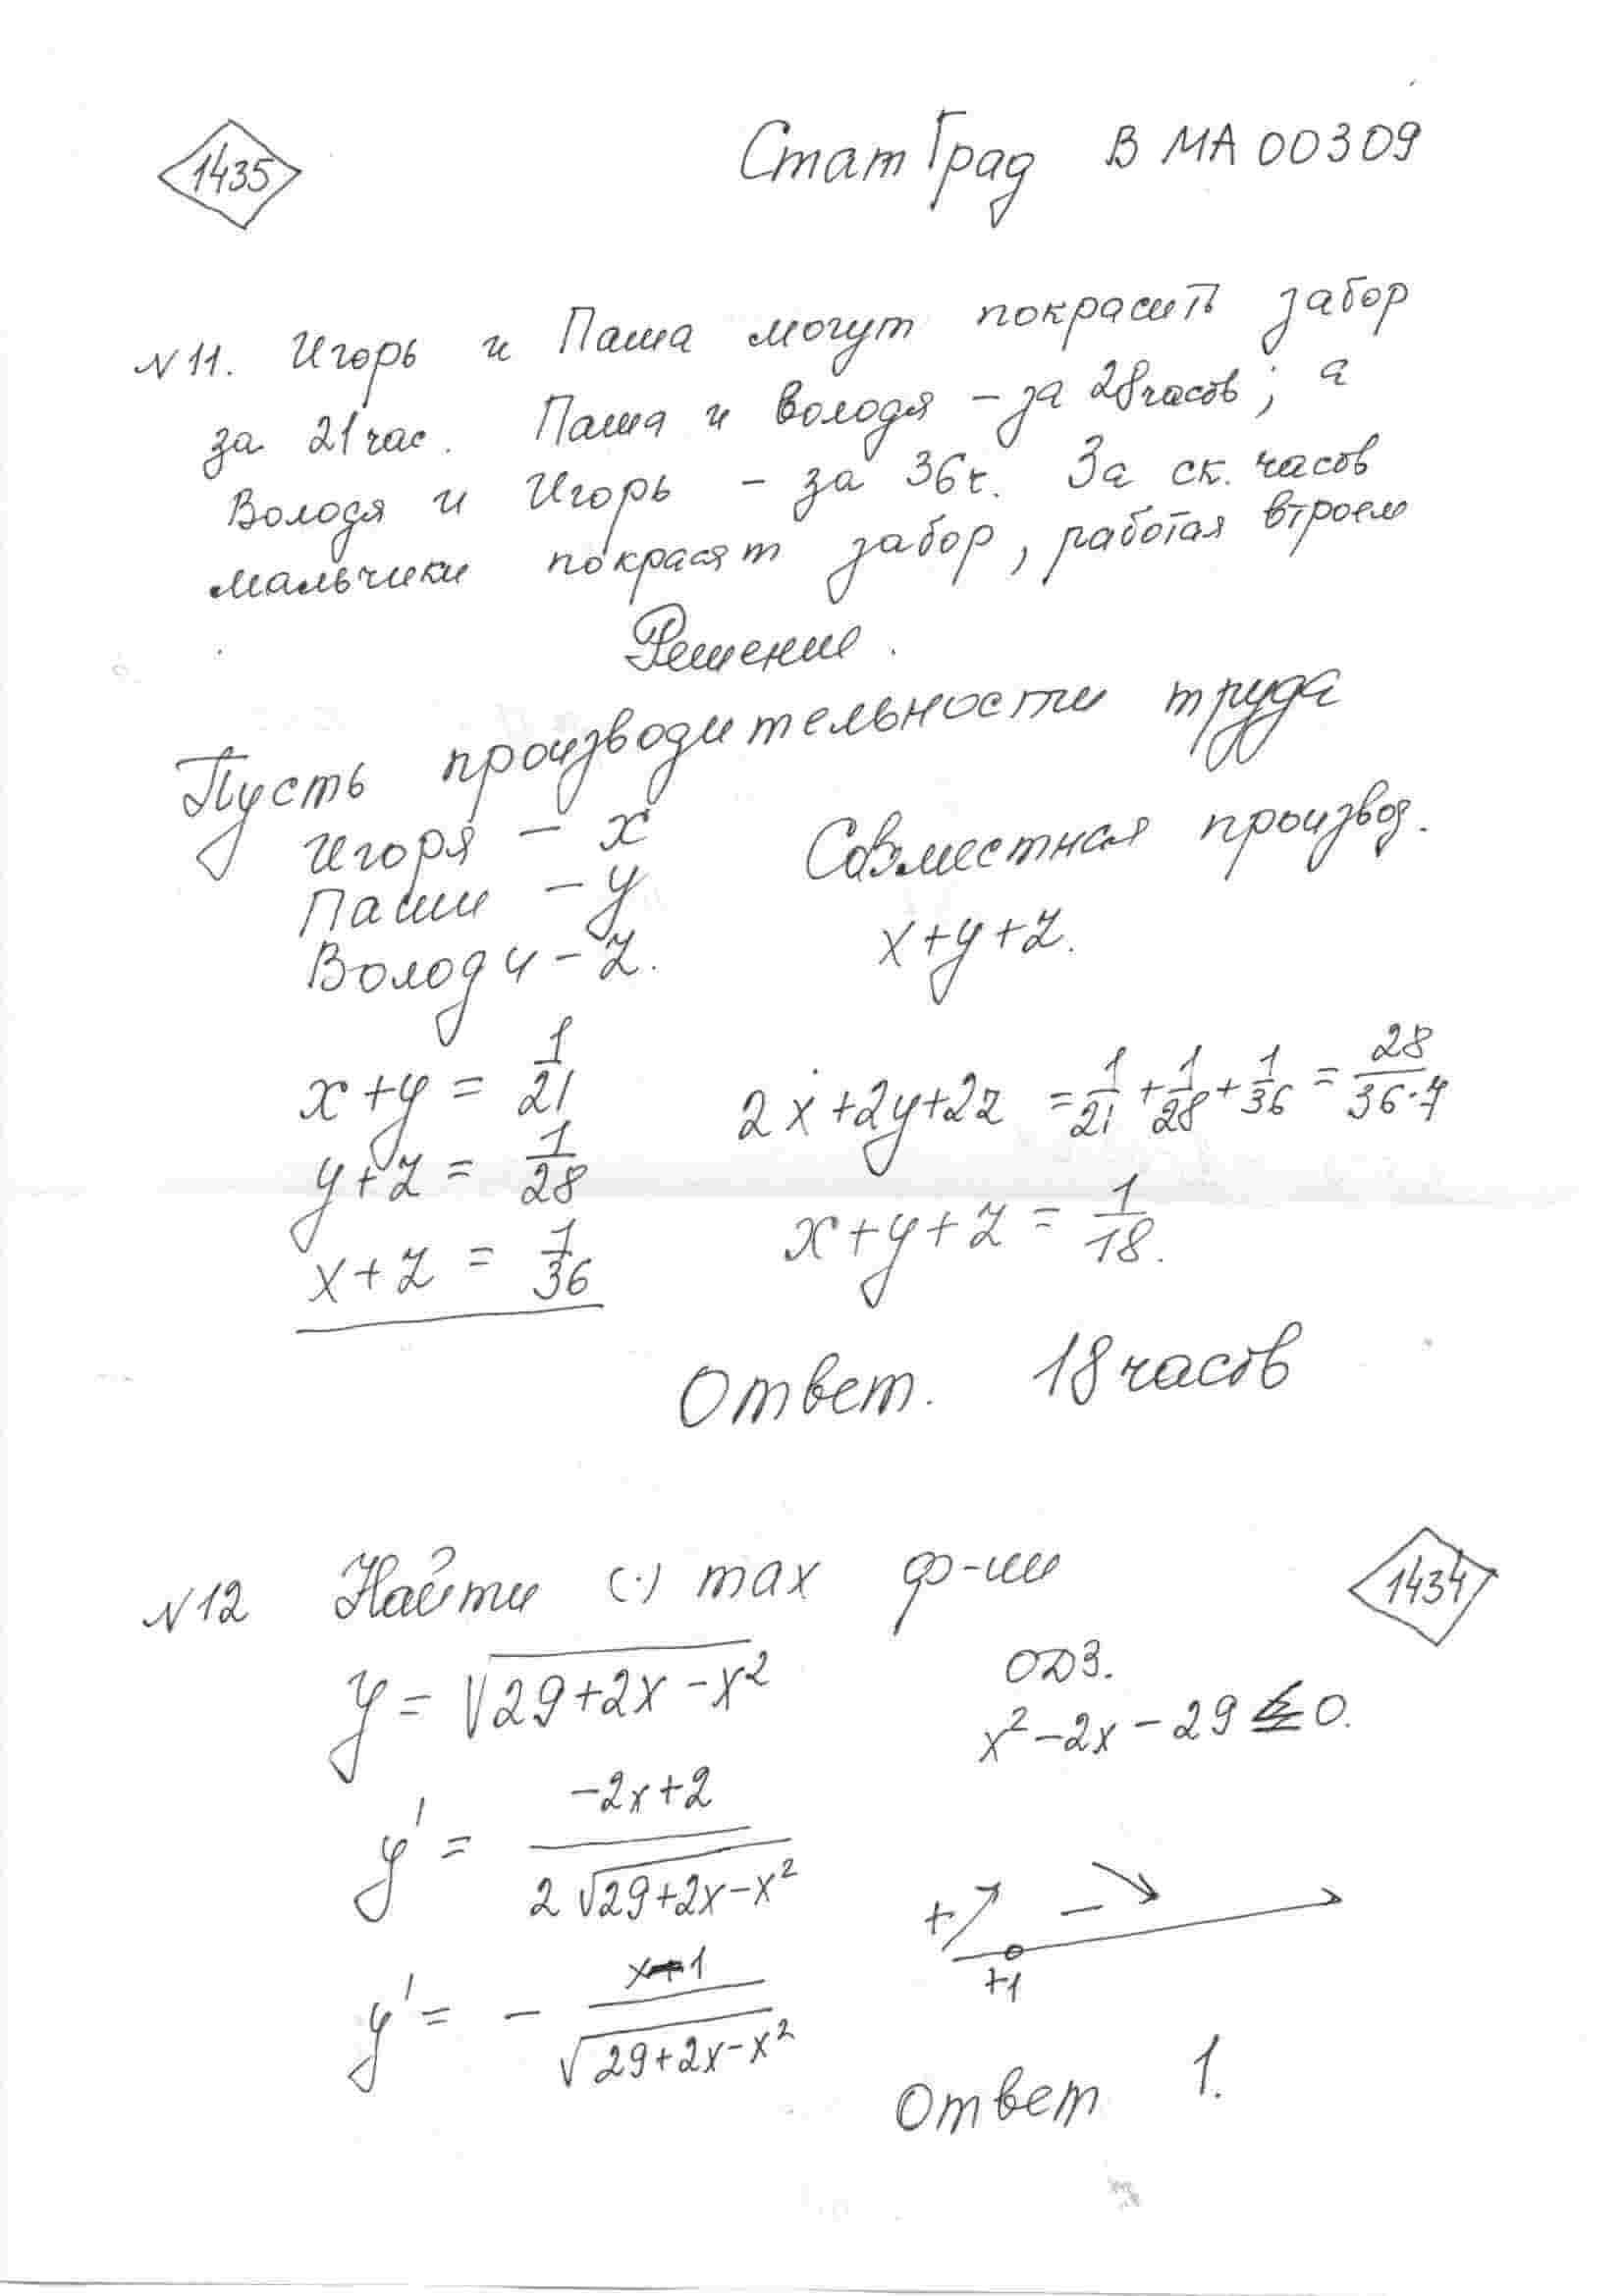 1435
СтатГрад В МА00309
N 11. Игорь и Паша могут покрасить забор
за 21 час. Паша и Володя - за 28 часов; а
Володя и Игорь - за 36 ч. За ск. часов
мальчики покрасят забор, работая втроем
Решение.
Пусть производительности труда
Игоря - x
Паши - y
Володи - z.
Совместная производ.
x+y+z.
x+y = 1/21
y+z = 1/28
x+z = 1/36
2x+2y+2z = 1/21 + 1/28 + 1/36 = 28/(36·7)
x+y+z = 1/18.
Ответ. 18 часов
1434
N 12 Найти (·) max ф-ии
y = √(29+2x-x²)
ОДЗ.
x²-2x-29 ≤ 0.
y' = (-2x+2)/(2√(29+2x-x²))
+ -
+1
y' = - (x-1)/√(29+2x-x²)
Ответ 1.